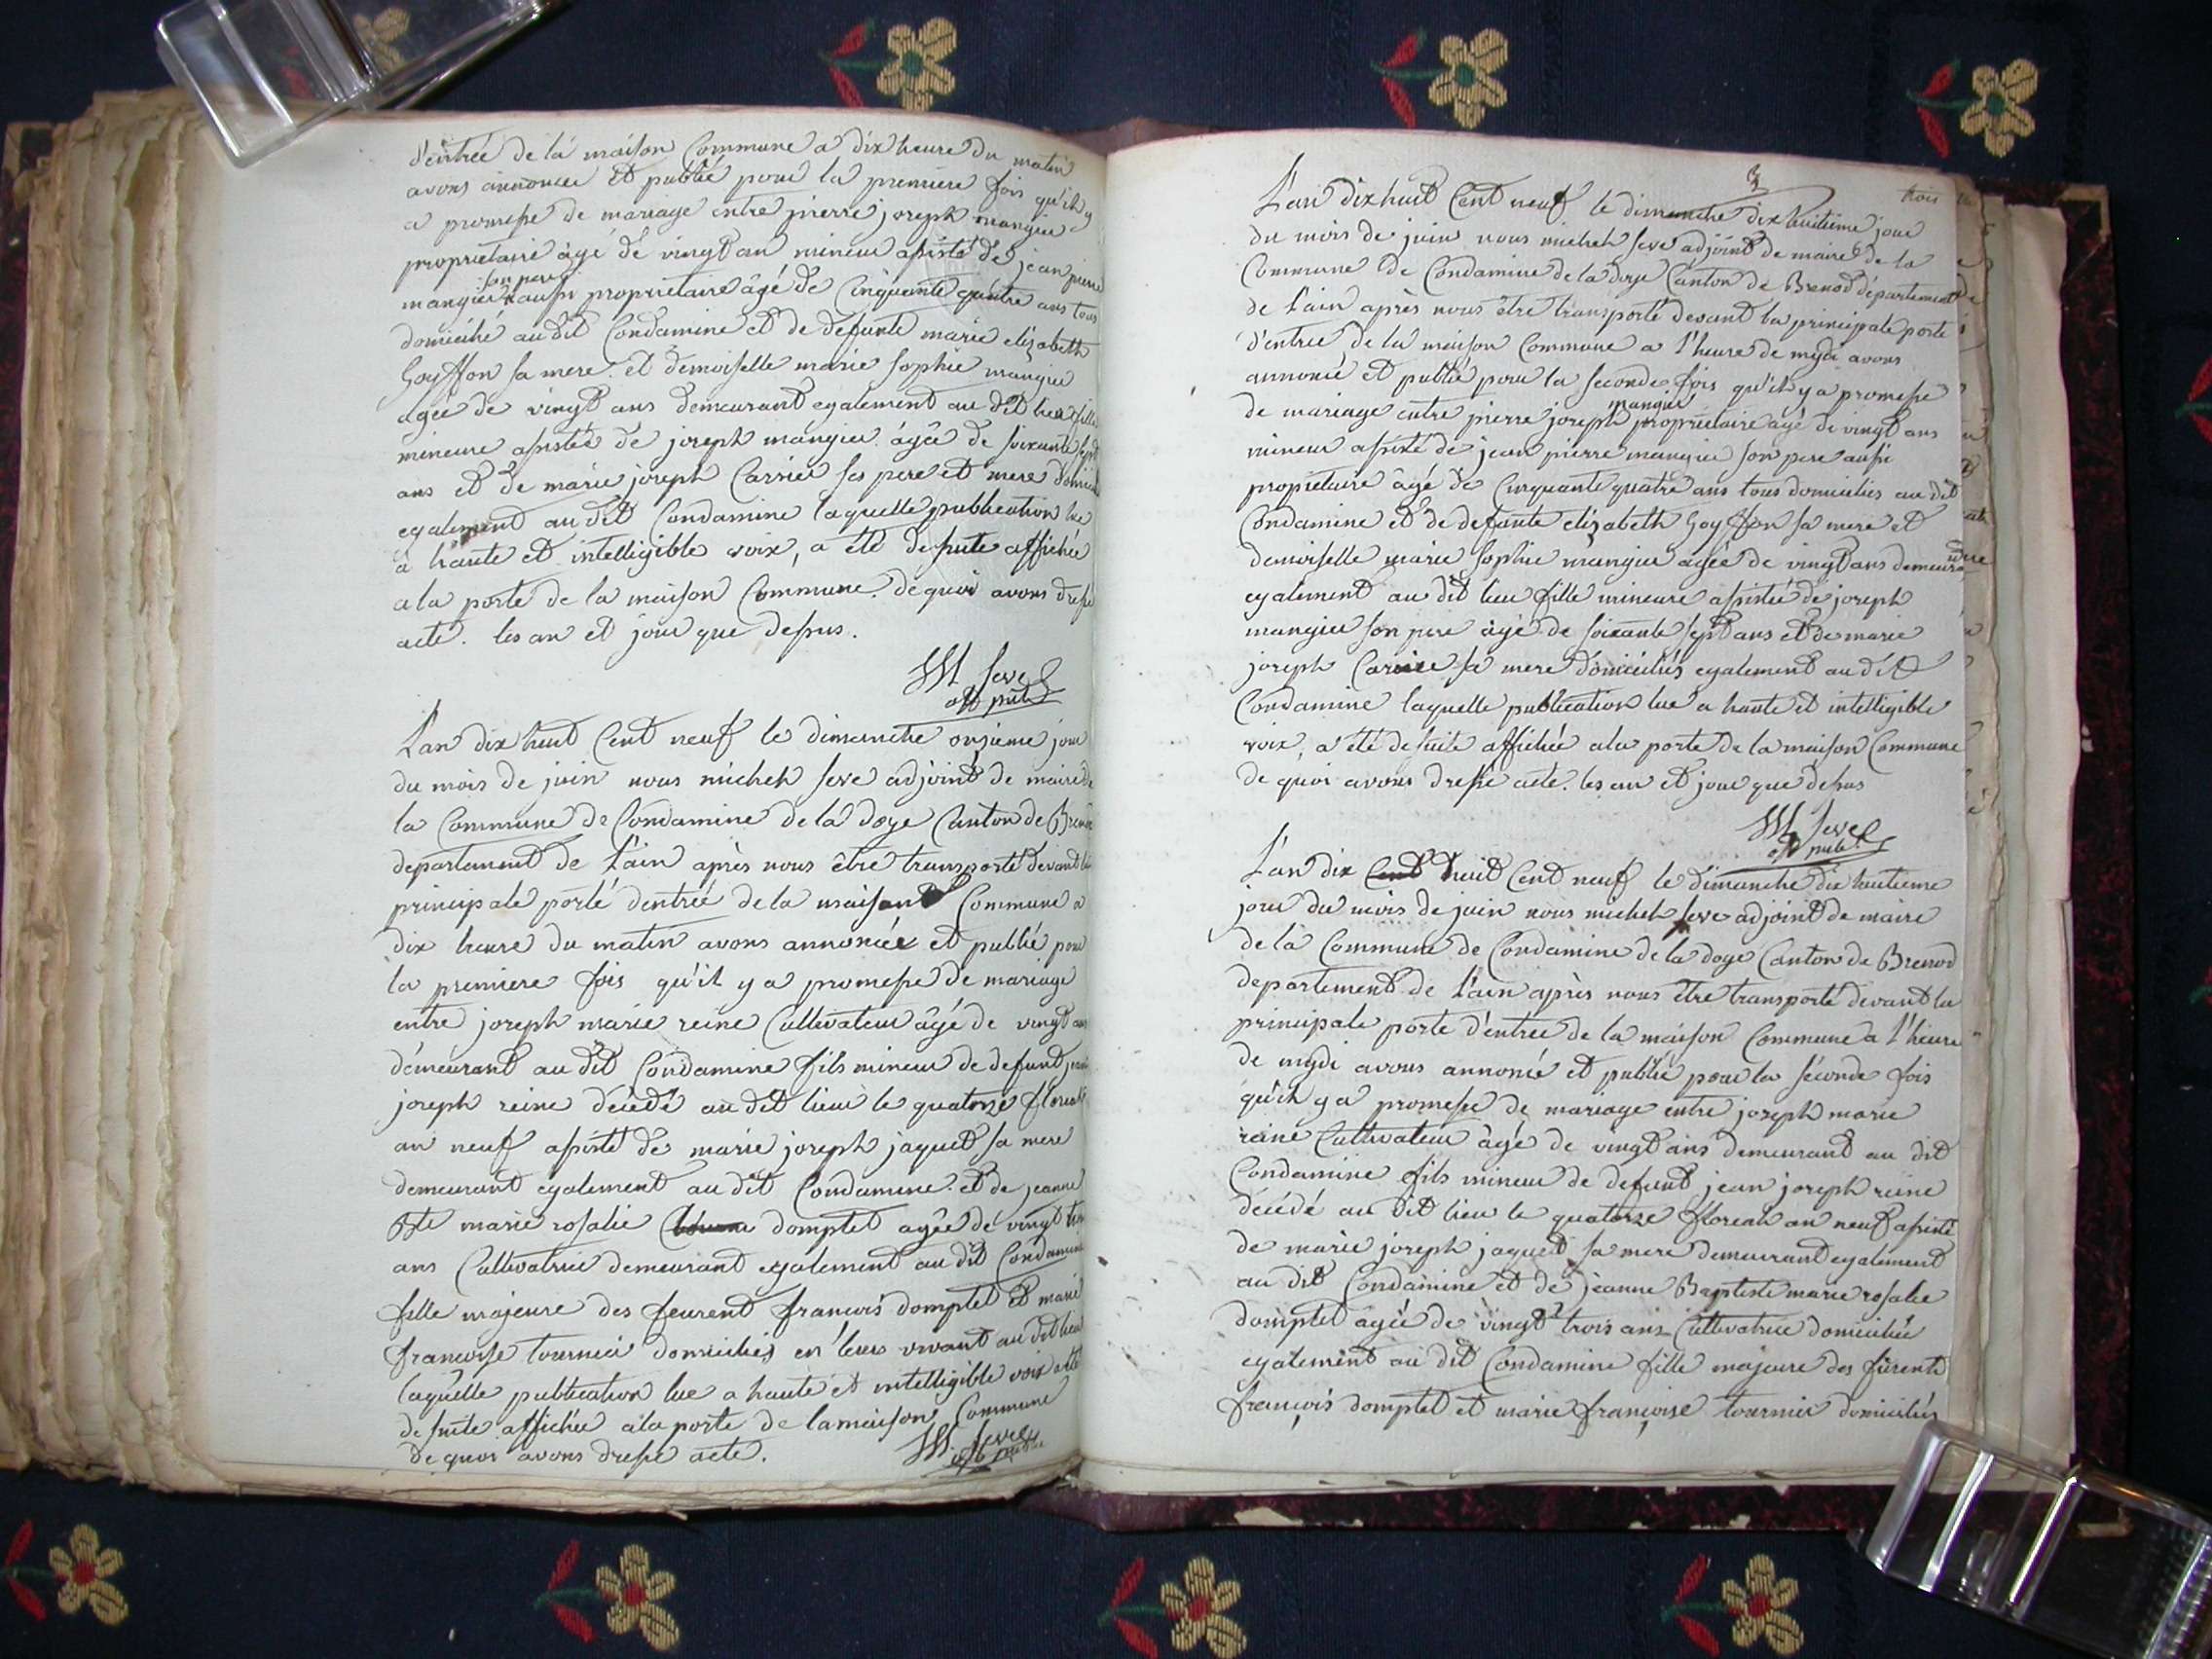 d'entrée de la maison Commune a dix heure du matin
avons annoncée et publié pour la premiere fois qu'il y
a promesse de mariage entre pierre joseph mangier
propriétaire âgé de vingt an mineur assisté de jean pierre
son pere
mangier aussi propriétaire âgé de Cinquante quatre ans tous
domicilié au dit Condamine et de defunte marie elizabeth
Goyffon sa mere. et demoiselle marie sophie mangier
agée de vingt ans demeurant egalement au dit lieu fille
mineure assistée de joseph mangier âgée de soixante sept
ans et de marie joseph Carrier ses pere et mere
egalement au dit Condamine laquelle publication lue
a haute et intelligible voix, a été de suite affichée
a la porte de la maison Commune. de quoi avons dressé
acte. les an et jour que dessus.
M Seve
L'an dix huit Cent neuf le dimanche onzieme jour
du mois de juin nous michel seve adjoint de maire de
la Commune de Condamine de la doye Canton de Brenod
departement de l'ain après nous être transporté devant la
principale porte dentrée de la maison Commune a
dix heure du matin avons annoncée et publié pour
la premiere fois qu'il y a promesse de mariage
entre joseph marie reine Cultivateur âgé de vingt ans
démeurant au dit Condamine fils mineur de defunt jean
joseph reine décédé au dit lieu le quatorze floreal
an neuf assisté de marie joseph jaquet sa mere
demeurant egalement au dit Condamine. et de jeanne
Bte marie rosalie domptet agée de vingt trois
ans Cultivatrice demeurant egalement au dit Condamine
fille majeure des feurent francois domptet et marie
francoise tournier domiciliés en leur vivant au dit lieu
laquelle publication lue a haute et intelligible voix a été
de suite affichée a la porte de la maison Commune
de quoi avons dressé acte.
M. Seve
3
trois
L'an dix huit Cent neuf le dimanche dix huitieme jour
du mois de juin nous michel seve adjoint de maire de la
Commune de Condamine de la doye Canton de Brenod département
de l'ain après nous être transporté devant la principale porte
d'entree de la maison Commune a l'heure de mydi avons
annoncé et publié pour la seconde fois qu'il y a promesse
mangier
de mariage entre pierre joseph propriétaire âgé de vingt ans
mineur assisté de jean pierre mangier son pere aussi
propriétaire âgé de Cinquante quatre ans tous domiciliés au dit
Condamine et de defunte elizabeth Goyffon sa mere et
demoiselle marie sophie mangier agée de vingt ans demeurant
egalement au dit lieu fille mineure assistée de joseph
mangier son pere âgé de soixante sept ans et de marie
joseph Carrier sa mere domiciliés egalement au dit
Condamine laquelle publication lue a haute et intelligible
voix, a été de suite affichée a la porte de la maison Commune
de quoi avons dressé acte. les an et jour que dessus
M Seve
L'an dix Cent huit Cent neuf le dimanche dix huitieme
jour du mois de juin nous michel seve adjoint de maire
de la Commune de Condamine de la doye Canton de Brenod
departement de l'ain après nous être transporté devant la
principale porte d'entree de la maison Commune a l'heure
de mydi avons annoncé et publié pour la seconde fois
qu'il y a promesse de mariage entre joseph marie
reine Cultivateur âgé de vingt ans demeurant au dit
Condamine fils mineur de defunt jean joseph reine
décédé au dit lieu le quatorze floreal an neuf assisté
de marie joseph jaquet sa mere demeurant egalement
au dit Condamine et de jeanne Baptiste marie rosalie
domptet âgée de vingt trois ans Cultivatrice domiciliée
egalement au dit Condamine fille majeure des furent
françois domptet et marie françoise tournier domiciliés